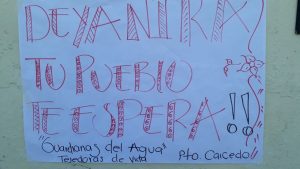 DEYANIRA
TU PUEBLO
TE ESPERA!!
"Guardianas del Agua"
Tejedoras de vida
Pto. Caicedo!!